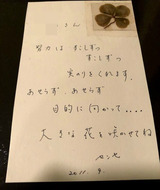 さん
努力は すこしずつ
すこしずつ
実りをくれます。
あせらず、あせらず
目的に 向かって....
大きな 花を 咲かせてね
2011. 9.